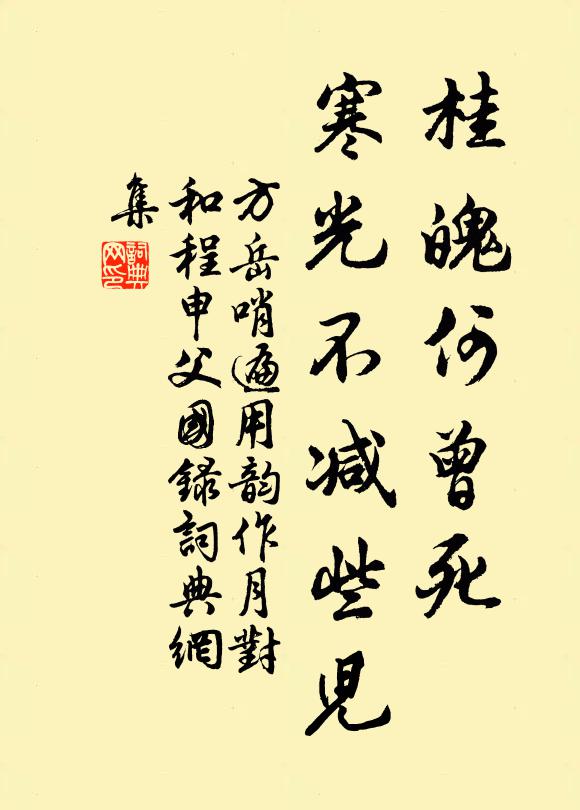 桂魄何曾死
寒光不减些兒
方岳哨遍用韵作月對
和程申父國録詞典網
集
詞典網印